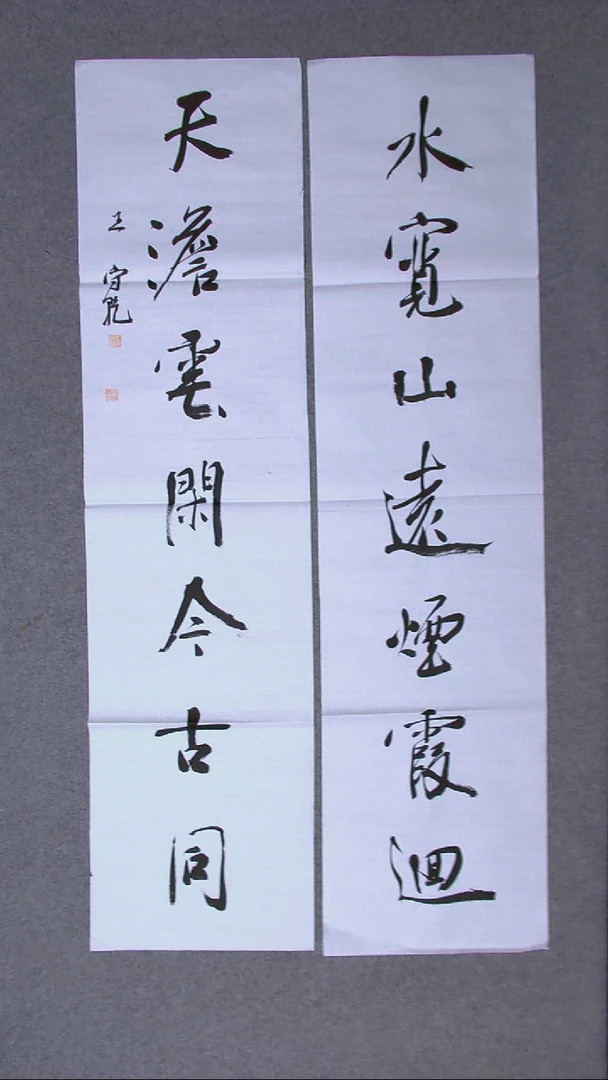 水寬山遠煙霞迴
天澹雲閑今古同
王守乾